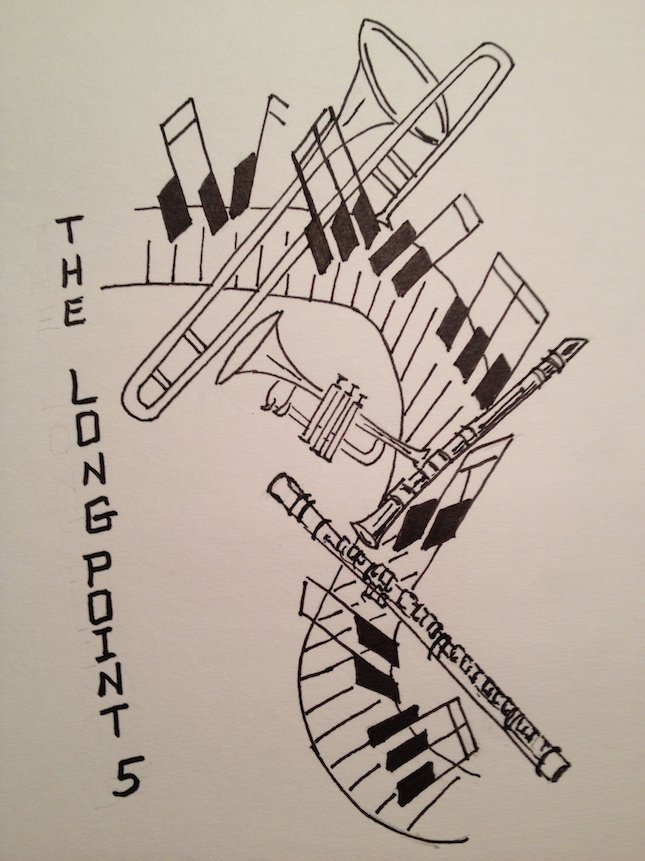 THE LONG POINT 5